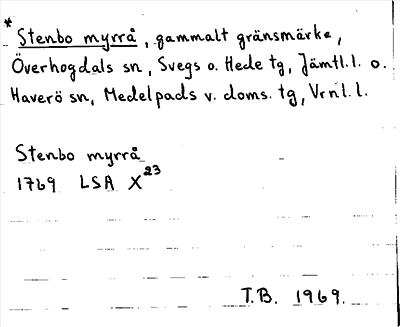 * Stenbo myrrå, gammalt gränsmärke,
Överhogdals sn, Svegs o. Hede tg, Jämtl.l. o.
Haverö sn, Medelpads v. doms. tg, Vrnl.l.
Stenbo myrrå
1769 LSA X23
T.B. 1969.